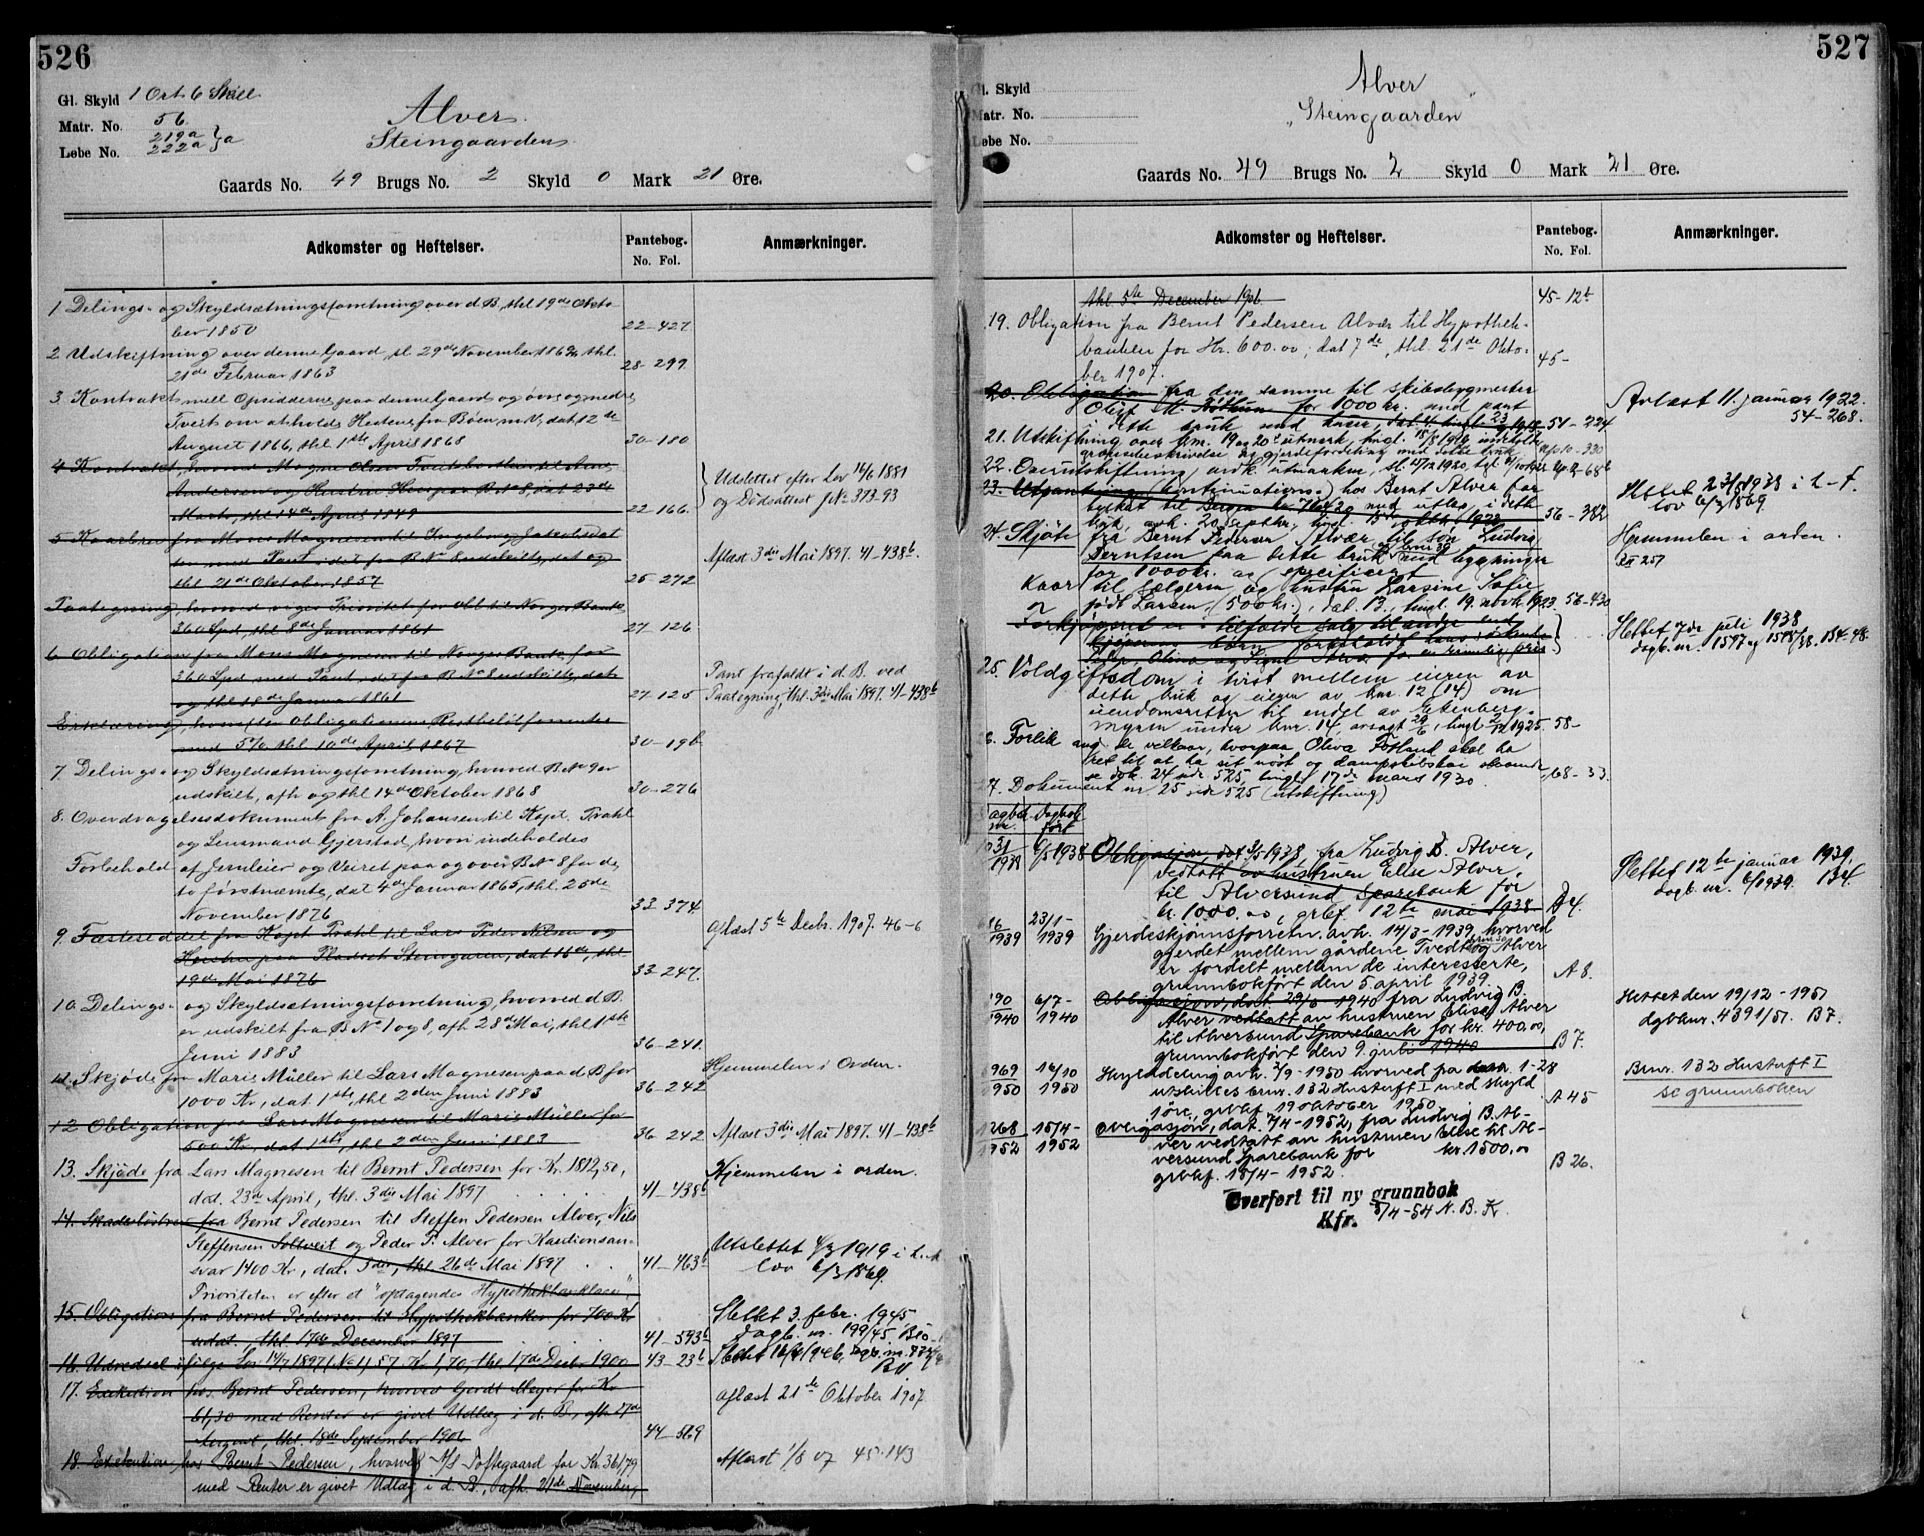 526
Gl. Skyld 1 Ort 6 Skill
Matr. No. 56
Løbe No. 219a 222a } a
Alver
Steingaarden
Gaards No. 49 Brugs No. 2 Skyld 0 Mark 21 Øre.
Adkomster og Heftelser.
Pantebog.
No. Fol.
Anmærkninger.
1 Delings- og Skyldsætningsforretning over d B, thl 19de Okto
ber 1850 22-427
2 Udskiftning over denne Gaard, sl 29de November 1862, thl.
21de Februar 1863 28-299
3 Kontrakt mell Opsidderne paa denne Gaard og øvre og nedre
Tveit om at holde Hestene fra Bøen m. V, dat 12te
August 1866, thl 1ste April 1868 30-110
4 Kontrakt, hvorved Mogne Olsen Tveit bortleier til Arne
Andersen og Hustru B No 8, dat 23de
Marts, thl 14de April 1849 22-166.
Udslettet efter Lov 16/6 1881
og Dødsattest J No 313-93
5 Kaarbrev fra Mons Magnesen til Ingeborg Jakobsdat
ter med Pant i det fra B No 8 udskilte, dat og
thl 21de Oktober 1857 25-272
Aflæst 3die Mai 1897. 41-438b.
Paategning, hvorved viges Prioritet for Obl til Norges Bank
360 Spd, thl 8de Januar 1861 27-126
6 Obligation fra Mons Magnesen til Norges Bank for
360 Spd med Pant i det fra B No 8 udskilte, dat
og thl 18de Januar 1861 27-125
Pant frafaldt i d. B. ved
Paategning, thl. 3die Mai 1897. 41-438b
Erklæring, hvorefter Obligationens Restbeløb forrentes
med 5 %, thl 10de April 1867 30-19b
7 Delings- og Skyldsætningsforretning, hvorved B No 9 er
udskilt, afh og thl 14de Oktober 1868 30-276
8. Overdragelsesdokument fra A. Johansen til Kapt. Prahl
og Lensmand Gjerstad, hvori indeholdes
Forbehold af Jernleier og Veiret paa og over B No 8 for de
to førstnævnte, dat 4de Januar 1865, thl. 25de
November 1876 33-374.
9. Fæsteseddel fra Kapt Prahl til Lars Peder Nilsen og
Hustru paa Pladset Steingaren, dat 16de, thl
19de Mai 1876 33-247.
Aflæst 5te Decbr. 1907. 46-6
10. Delings- og Skyldsætningsforretning, hvorved d B.
er udskilt fra B No 1 og 8, afh 28de Mai, thl 1ste
Juni 1883 36-241.
11. Skjøde fra Marie Müller til Lars Magnesen paa d B for
1000 Kr, dat 1ste, thl 2den Juni 1883 36-242
Hjemmelen i Orden.
12 Obligation fra Lars Magnesen til Marie Müller for
500 Kr, dat 1ste, thl 2den Juni 1883 36-242
Aflæst 3die Mai 1897. 41-438b
13. Skjøde fra Lars Magnesen til Bernt Pedersen for Kr. 1812,50,
dat. 23de April, thl. 3die Mai 1897 41-438b
Hjemmelen i orden.
14. Skadesløsbrev fra Bernt Pedersen til Steffen Pedersen Alver, Nils
Steffensen Soltveit og Peder P. Alver for Kautionsan-
svar 1400 Kr, dat. 3die, thl. 26de Mai 1897 41-463b
Prioriteten er efter et "optagendes Hypothekbanklaan".
Utslettet 4/3 1919 i h. t.
lov 6/3 1869.
15. Obligation fra Bernt Pedersen til Hypothekbanken for 700 Kr
udat., thl. 17de December 1897 41-593b
Slettet 3. febr. 1945,
dagb. nr. 199/45. B10
16. Udredsel ifølge Lov 14/7 1897 No 1, 57 Kr 1,70, thl 17de Decbr 1900 43-23b
17. Exekution hos Bernt Pedersen, hvorved Gerdt Meyer for Kr
61,30 med Renter er givet Udlæg i d. B., afh 27de
August, thl. 18de September 1906 44-569
aflæst 21de Oktober 1907
18. Exekution hos Bernt Pedersen, hvorved A/S Toftegaard for Kr. 361,79
med Renter er givet Udlæg i d. B., afh. 21de November,
Aflæst 1/8 07 45-143
527
Gl. Skyld
Matr. No.
Løbe No.
Alver
"Steingaarden"
Gaards No. 49 Brugs No. 2 Skyld 0 Mark 21 Øre.
Adkomster og Heftelser.
Pantebog.
No. Fol.
Anmærkninger.
thl. 5te December 1906. 45-12b
19. Obligation fra Bernt Pedersen Alver til Hypothek-
banken for Kr. 600.00, dat 7de, thl. 21de Okto-
ber 1907. 45-
20. Obligation fra den samme til skibsbygmester
Oluf M. for 1000 kr. med pant
i dette bruk med huser, 51-224
Avlæst 11. januar 1922.
54-268.
21. Utskiftning over brn. 19 og 20 utmark, tingl. 15/5 1916 indeholdt
grænsebeskrivelse og gjerdefordeling med dette bruk 10-330
22. Overutskiftning
23. Utpantning (Continuations-) hos Bernt Alver for
utlæg i dette
bruk, avh. 20 septbr, tingl. 15de oktbr. 1923 56-382
Slettet 23/5 1938 i h-t.
lov 6/3 1869
24. Skjøte fra Bernt Pedersen Alvær til søn Ludvig
Berntsen paa dette bruk med bygninger
for 1000 kr. og specificert
Hjemmelen i orden.
Kaar til sælgeren og hustru Larsine Sofie
født Larsen, (500 kr.), dat. 13., tingl. 19. novbr. 1923. 56-430
og
Forkjøpsret er i tilfælde salg til andre end
kjøperens børn forbeholdt hans søskende
Slettet 7de juli 1938
dagb. nr. 1597
25. Voldgiftsdom i tvist mellem eieren av
dette bruk og eieren av bnr 12 (14) om
eiendomsretten til endel av Ekenberg-
myren under bnr. 14, avsagt 29/6, tingl. 2/12 1925. 58-
26. Forlik ang. de vilkaar, hvorpaa Oliva Fotland skal ha
ret til at ha sit nøst og dampskibskai
se dok. 24 side 525, tingl. 17de mars 1930. 68-33.
27. Dokument nr 25 side 525 (utskiftning)
Dagbok nr. Dagbok ført
1938 9/5 1938 Obligasjon, dat 3/5-1938, fra Ludvig B. Alver,
vedtatt av hustruen Elise Alver,
til Alversund Sparebank for
kr. 1000.00, grbf. 12te mai 1938. A 4.
Slettet 12te januar 1939.
dagb. nr. 6/1939. B4.
1939 23/1-1939 Gjerdeskjønnsforretn. avh. 14/3-1939, hvorved
gjerdet mellem gårdene Tvedt og Alver
er fordelt mellem de interesserte,
grunnbokført den 5 april 1939. A 8.
1940 6/7-1940 Obligasjon, dat. 29/6 1940 fra Ludvig B.
Alver vedtatt av hustruen Elise Alver
til Alversund Sparebank for kr. 400,00,
grunnbokført den 9. juli 1940 B 7.
Slettet den 19/12-1951
dgbknr. 4391/51. B7.
969 1950 14/10 1950 Skylddeling avh. 2/9-1950 hvorved fra 1-28
utskilles bnr. 132 Hustuft I med skyld
1 øre, grbf. 19 oktober 1950. A 45
Bnr. 132 Hustuft I
se grunnboken
1268 1952 15/4-1952 Obligasjon, dat. 7/4-1952, fra Ludvig B. Al-
ver vedtatt av hustruen Elise til Al-
versund Sparebank for kr. 1500,00
grbkf. 18/4-1952. B 26.
Overført til ny grunnbok
Kfr. 5/4-54 N. B. K.